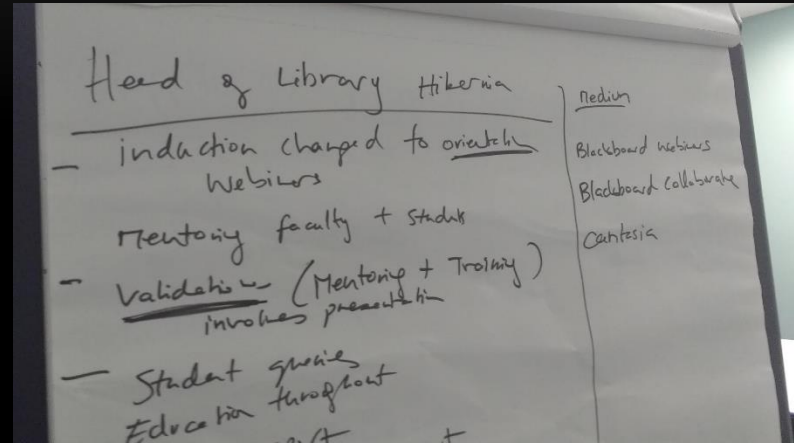 Head of Library Hibernia
- induction changed to orientation
Webinars
Mentoring faculty + Students
- Validation (Mentoring + Training)
involves presentation
- Student queries
Education throughout
Medium
Blackboard webinars
Blackboard Collaborate
Camtasia